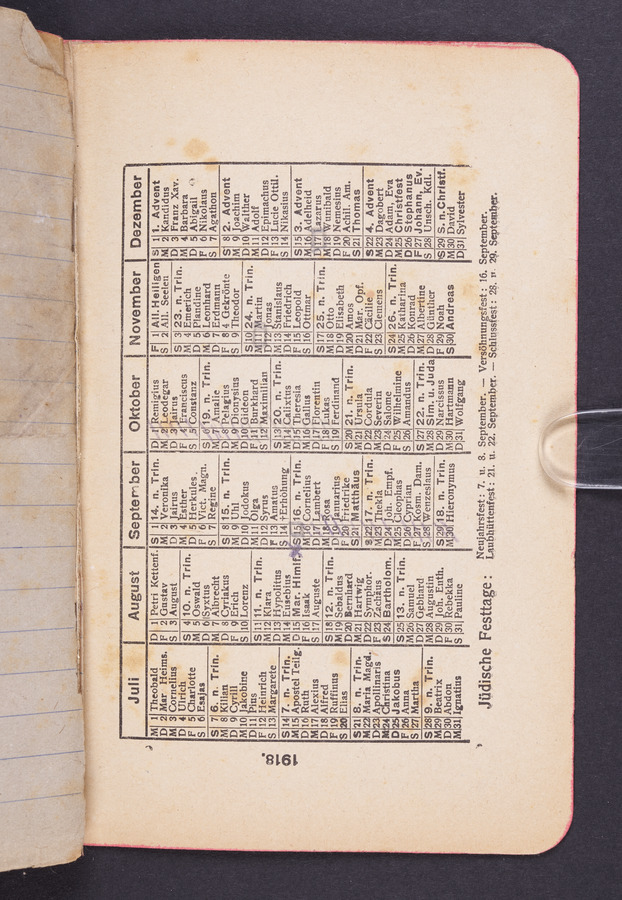 1918.
Juli
M 1 Theobald
D 2 Mar. Heims.
M 3 Cornelius
D 4 Ulrich
F 5 Charlotte
S 6 Esajas
S 7 6. n. Trin.
M 8 Kilian
D 9 Cyrill
M 10 Jakobine
D 11 Pius
F 12 Heinrich
S 13 Margarete
S 14 7. n. Trin.
M 15 Apostel Teilg.
D 16 Ruth
M 17 Alexius
D 18 Alfred
F 19 Ruffinus
S 20 Elias
S 21 8. n. Trin.
M 22 Maria Magd.
D 23 Apollinaris
M 24 Christina
D 25 Jakobus
F 26 Anna
S 27 Martha
S 28 9. n. Trin.
M 29 Beatrix
D 30 Abdon
M 31 Ignatius
August
D 1 Petri Kettenf.
F 2 Gustav
S 3 August
S 4 10. n. Trin.
M 5 Oswald
D 6 Syxtus
M 7 Albrecht
D 8 Cyriakus
F 9 Erich
S 10 Lorenz
S 11 11. n. Trin.
M 12 Klara
D 13 Hypolitus
M 14 Eusebius
D 15 Mar. Himlf.
F 16 Isaak
S 17 Auguste
S 18 12. n. Trin.
M 19 Sebaldus
D 20 Bernhard
M 21 Hartwig
D 22 Symphor.
F 23 Zachäus
S 24 Bartholom.
S 25 13. n. Trin.
M 26 Samuel
D 27 Gebhard
M 28 Augustin
D 29 Joh. Enth.
F 30 Rebekka
S 31 Pauline
September
S 1 14. n. Trin.
M 2 Veronika
D 3 Jairus
M 4 Esther
D 5 Herkules
F 6 Vict. Magn.
S 7 Regine
S 8 15. n. Trin.
M 9 Uhl
D 10 Jodokus
M 11 Olga
D 12 Syrus
F 13 Amatus
S 14 †Erhöhung
S 15 16. n. Trin.
M 16 Cornelius
D 17 Lambert
M 18 Rosa
D 19 Januarius
F 20 Friedrike
S 21 Matthäus
S 22 17. n. Trin.
M 23 Thekla
D 24 Joh. Empf.
M 25 Cleophas
D 26 Cyprian
F 27 Kosm. Dam.
S 28 Wenzeslaus
S 29 18. n. Trin.
M 30 Hieronymus
Oktober
D 1 Remigius
M 2 Leodegar
D 3 Jairus
F 4 Franciscus
S 5 Constanz
S 6 19. n. Trin.
M 7 Amalie
D 8 Pelagius
M 9 Dionysius
D 10 Gideon
F 11 Burkhard
S 12 Maximilian
S 13 20. n. Trin.
M 14 Calixtus
D 15 Theresia
M 16 Gallus
D 17 Florentin
F 18 Lukas
S 19 Ferdinand
S 20 21. n. Trin.
M 21 Ursula
D 22 Cordula
M 23 Severin
D 24 Salome
F 25 Wilhelmine
S 26 Amandus
S 27 22. n. Trin.
M 28 Sim. u. Juda
D 29 Narcissus
M 30 Hartmann
D 31 Wolfgang
November
F 1 All. Heiligen
S 2 All. Seelen
S 3 23. n. Trin.
M 4 Emerich
D 5 Blandine
M 6 Leonhard
D 7 Erdmann
F 8 4 Gekrönte
S 9 Theodor
S 10 24. n. Trin.
M 11 Martin
D 12 Jonas
M 13 Stanislaus
D 14 Friedrich
F 15 Leopold
S 16 Ottmar
S 17 25. n. Trin.
M 18 Otto
D 19 Elisabeth
M 20 Amos
D 21 Mar. Opf.
F 22 Cäcilie
S 23 Clemens
S 24 26. n. Trin.
M 25 Katharina
D 26 Konrad
M 27 Albertine
D 28 Günther
F 29 Noah
S 30 Andreas
Dezember
S 1 1. Advent
M 2 Kandidus
D 3 Franz Xav.
M 4 Barbara
D 5 Abigail
F 6 Nikolaus
S 7 Agathon
S 8 2. Advent
M 9 Joachim
D 10 Walther
M 11 Adolf
D 12 Epimachus
F 13 Lucie Ottil.
S 14 Nikasius
S 15 3. Advent
M 16 Adelheid
D 17 Lazarus
M 18 Wunibald
D 19 Nemesius
F 20 Achil. Am.
S 21 Thomas
S 22 4. Advent
M 23 Dagobert
D 24 Adam, Eva
M 25 Christfest
D 26 Stephanus
F 27 Johann. Ev.
S 28 Unsch. Kdl.
S 29 S. n. Christf.
M 30 David
D 31 Sylvester
Jüdische Festtage:
Neujahrsfest: 7. u. 8. September. — Versöhnungsfest: 16. September.
Laubhüttenfest: 21. u. 22. September. — Schlussfest: 28. u. 29. September.